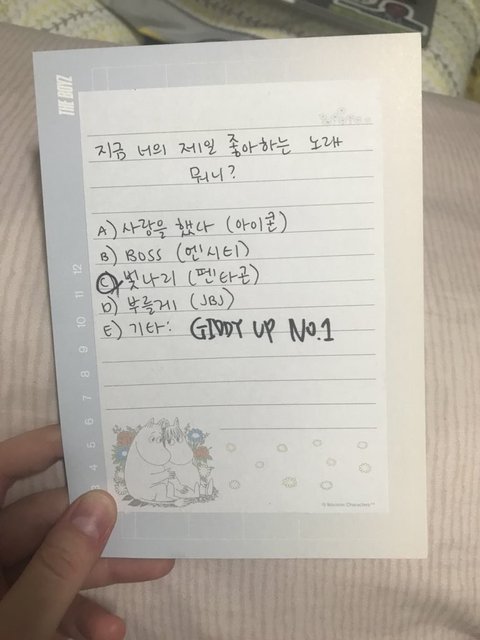 THE BOYZ
지금 너의 제일 좋아하는 노래
뭐니?
A) 사랑을 했다 (아이콘)
B) BOSS (엔시티)
C) 빛나리 (펜타곤)
D) 부를게 (JBJ)
E) 기타: GIDDY UP NO.1
12
11
10
9
8
7
6
5
4
3
© Moomin Characters™